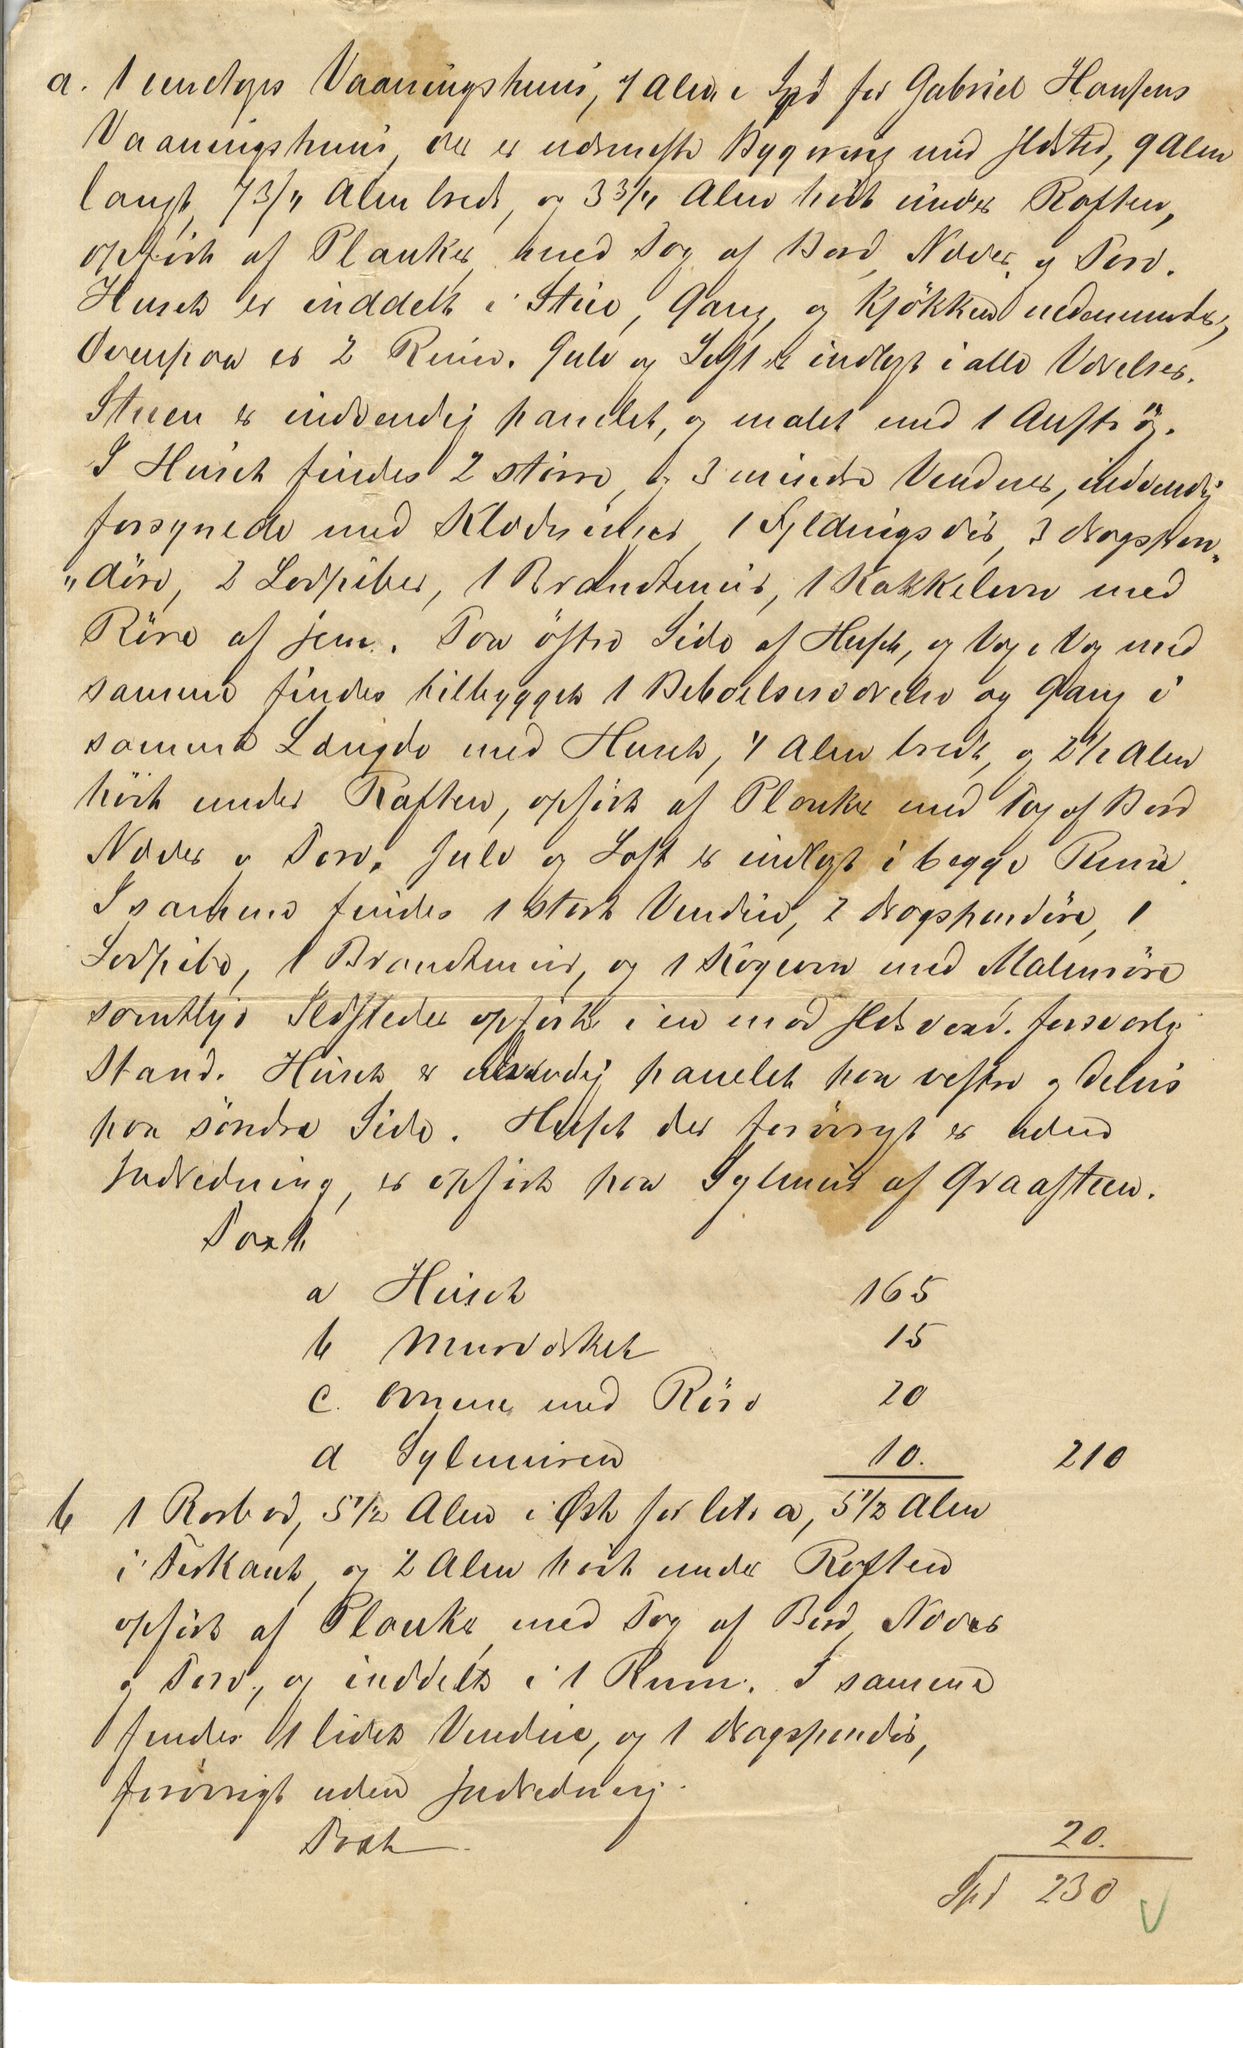 a. 1 eenetages Vaaningshuus, 4 Alen i Syd for Gabriel Hansens
Vaaningshuus, der er nærmeste Bygning med Ildsted, 9 Alen
langt, 7 3/4 Alen bredt, og 3 3/4 Alen høit under Raften,
opført af Planker, med Tag af Bord, Næver og Torv.
Huset er inddelt i Stue, Gang, og Kjøkken nedenunder,
Ovenpaa er 2 Rum. Gulv og Loft er indlagt i alle Værelser.
Stuen er indvendig panelet, og malet med 1 Anstrøg.
I Huset findes 2 større, og 3 mindre Vinduer, indvendig
forsynede med Klædninger, 1 Fyldingsdør, 3 Dragspon-
"døre, 2 Lodpiber, 1 Brandtmuur, 1 Kakkelovn med
Röre af jern. Paa östre Side af Huset, og Væg i Væg med
samme findes tilbygget 1 Beboelsesværelse og Gang i
samme Længde med Huset, 4 Alen bredt, og 2 1/2 Alen
höit under Raften, opført af Planker med Tag af Bord
Næver og Torv. Gulv og Loft er indlagt i begge Rum.
I samme findes 1 stort Vindue, 2 Dragspondöre, 1
Lodpibe, 1 Brandtmuur, og 1 Kogeovn med Malmröre
samtlige Ildsteder opført i en mod Ildsvaad. forsvarlig
Stand. Huset er udvendig panelet paa vestre og delvis
paa söndre Side. Huset der forövrigt er uden
Indredning, er opført paa Sylmuur af Graasteen.
Taxt
a Huset 165
b Murværket 15
c. Ovnene med Röre 20
d Sylmuren 10. 210
b 1 Rorbod, 5 1/2 Alen i Øst for litr a, 5 1/2 Alen
i Firkant, og 2 Alen höit under Raften
opført af Planker, med Tag af Bord, Næver
og Torv, og inddelt i 1 Rum. I samme
findes 1 lidet Vindue, og 1 Dragspondör,
forövrigt uden Indredning.
Taxt 20.
Spd 230